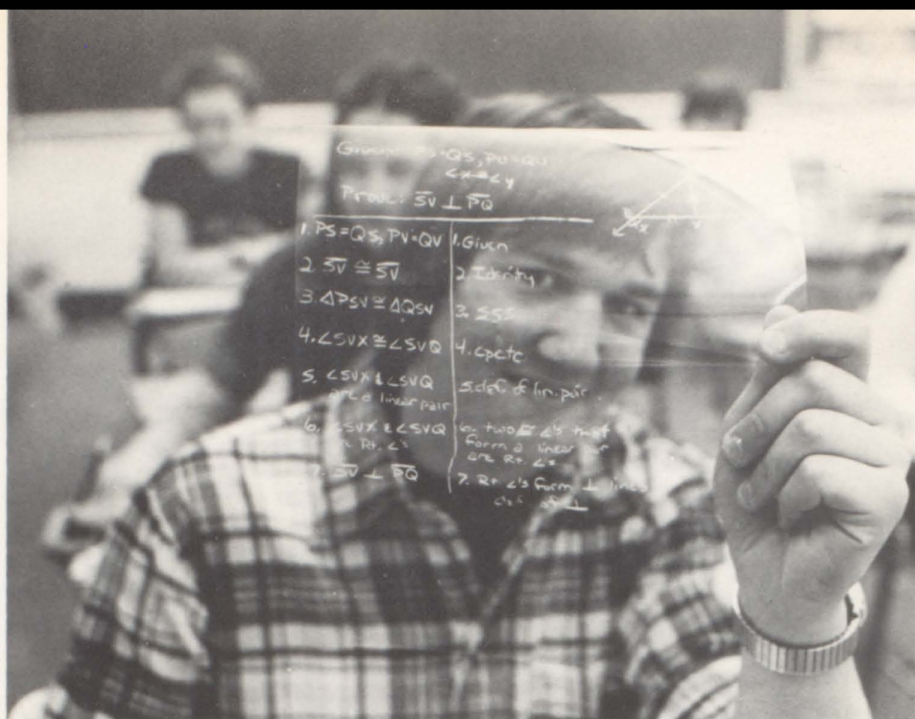 Given: PS=QS, PV=QV
∠x≅∠y
Prove: SV ⊥ PQ
1. PS=QS, PV=QV 1. Given
2. SV ≅ SV 2. Identity
3. ΔPSV ≅ ΔQSV 3. SSS
4. ∠SVX ≅ ∠SVQ 4. cpctc
5. ∠SVX & ∠SVQ 5. def. of lin. pair
are a linear pair
6. ∠SVX & ∠SVQ 6. two ≅ ∠'s that
are Rt. ∠'s form a linear pair
are Rt. ∠s
7. SV ⊥ PQ 7. Rt ∠'s form ⊥ lines
def. of ⊥
x V